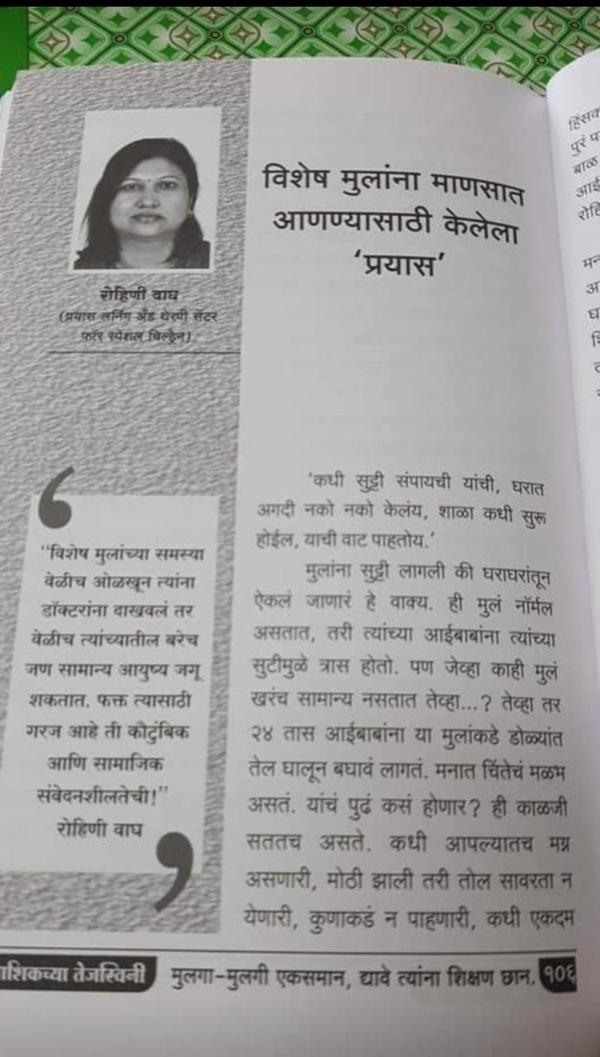 रोहिणी वाघ
(प्रयास लर्निंग अँड थेरपी सेंटर
फॉर स्पेशल चिल्ड्रेन)
विशेष मुलांना माणसात
आणण्यासाठी केलेला
‘प्रयास’
“विशेष मुलांच्या समस्या
वेळीच ओळखून त्यांना
डॉक्टरांना दाखवलं तर
वेळीच त्यांच्यातील बरेच
जण सामान्य आयुष्य जगू
शकतात. फक्त त्यासाठी
गरज आहे ती कौटुंबिक
आणि सामाजिक
संवेदनशीलतेची!”
रोहिणी वाघ
‘कधी सुट्टी संपायची यांची, घरात
अगदी नको नको केलंय, शाळा कधी सुरू
होईल, याची वाट पाहतोय.’
मुलांना सुट्टी लागली की घराघरांतून
ऐकलं जाणारं हे वाक्य. ही मुलं नॉर्मल
असतात, तरी त्यांच्या आईबाबांना त्यांच्या
सुटीमुळे त्रास होतो. पण जेव्हा काही मुलं
खरंच सामान्य नसतात तेव्हा...? तेव्हा तर
२४ तास आईबाबांना या मुलांकडे डोळ्यांत
तेल घालून बघावं लागतं. मनात चिंतेचं मळभ
असतं. यांचं पुढं कसं होणार? ही काळजी
सततच असते. कधी आपल्यातच मग्न
असणारी, मोठी झाली तरी तोल सावरता न
येणारी, कुणाकडं न पाहणारी, कधी एकदम
ाशिकच्या तेजस्विनी
मुलगा-मुलगी एकसमान, द्यावे त्यांना शिक्षण छान.
१०६
हिंसक
पुरं प
बाळ
आई
रोहि
मन